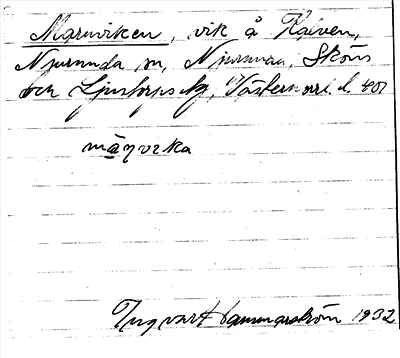 Marmviken, vik å Kalven,
Njurunda sn, Njurunda, Sköns
och Ljustorps tg, Västernorrl. l. 401
mạŋvika
Ingvar Hammarström 1932